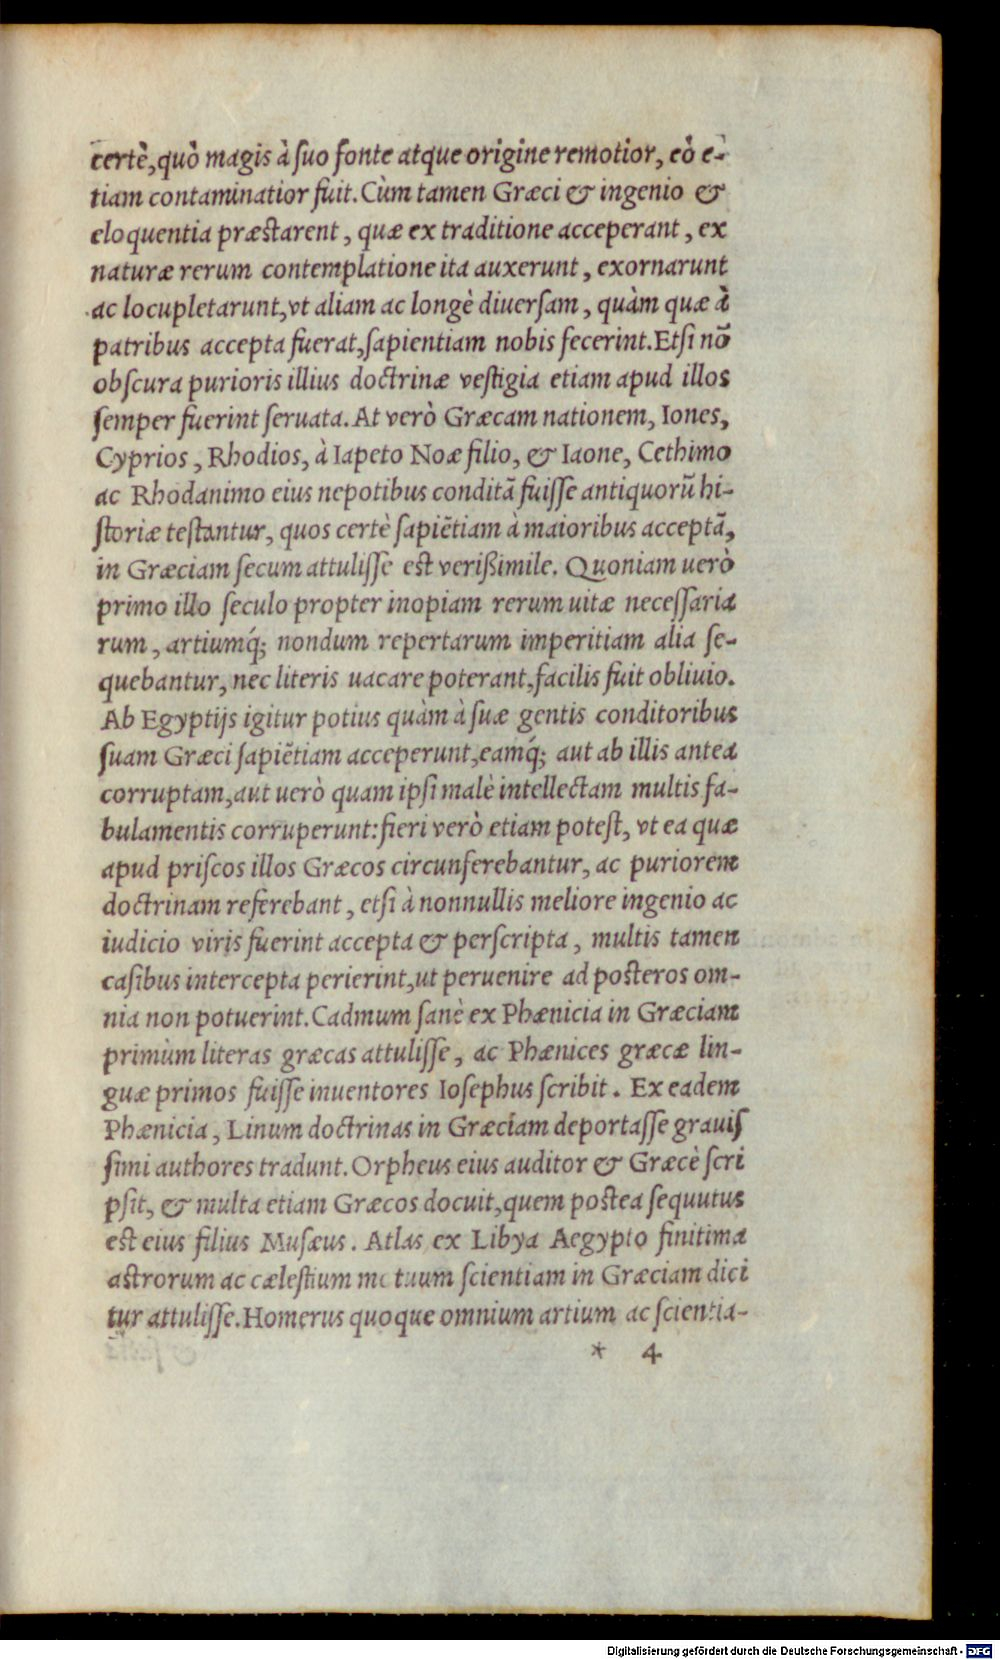 certè, quò magis à suo fonte atque origine remotior, eò e-
tiam contaminatior fuit. Cùm tamen Græci & ingenio &
eloquentia præstarent, quæ ex traditione acceperant, ex
naturæ rerum contemplatione ita auxerunt, exornarunt
ac locupletarunt, vt aliam ac longè diuersam, quàm quæ à
patribus accepta fuerat, sapientiam nobis fecerint. Etsi nō
obscura purioris illius doctrinæ vestigia etiam apud illos
semper fuerint seruata. At verò Græcam nationem, Iones,
Cyprios, Rhodios, à Iapeto Noæ filio, & Iaone, Cethimo
ac Rhodanimo eius nepotibus conditā fuisse antiquorū hi-
storiæ testantur, quos certè sapiētiam à maioribus acceptā,
in Græciam secum attulisse est verißimile. Quoniam uerò
primo illo seculo propter inopiam rerum uitæ necessaria
rum, artiumq́; nondum repertarum imperitiam alia se-
quebantur, nec literis uacare poterant, facilis fuit obliuio.
Ab Egyptijs igitur potius quàm à suæ gentis conditoribus
suam Græci sapiētiam acceperunt, eamq́; aut ab illis antea
corruptam, aut uerò quam ipsi malè intellectam multis fa-
bulamentis corruperunt: fieri verò etiam potest, vt ea quæ
apud priscos illos Græcos circunferebantur, ac puriorem
doctrinam referebant, etsi à nonnullis meliore ingenio ac
iudicio viris fuerint accepta & perscripta, multis tamen
casibus intercepta perierint, ut peruenire ad posteros om-
nia non potuerint. Cadmum sanè ex Phænicia in Græciam
primùm literas græcas attulisse, ac Phænices græcæ lin-
guæ primos fuisse inuentores Iosephus scribit. Ex eadem
Phænicia, Linum doctrinas in Græciam deportasse grauis
simi authores tradunt. Orpheus eius auditor & Græcè scri
psit, & multa etiam Græcos docuit, quem postea sequutus
est eius filius Musæus. Atlas ex Libya Aegypto finitima
astrorum ac cælestium motuum scientiam in Græciam dici
tur attulisse. Homerus quoque omnium artium ac scientia-
* 4
Digitalisierung gefördert durch die Deutsche Forschungsgemeinschaft - DFG